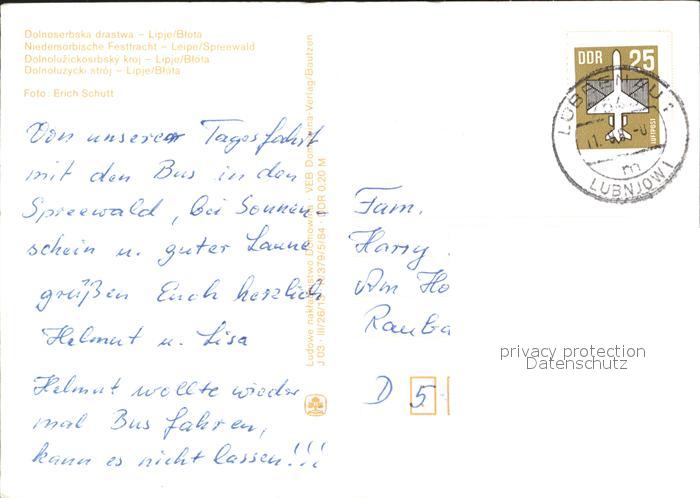 Dolnoserbska drastwa – Lipje/Błota
Niedersorbische Festtracht – Leipe/Spreewald
Dolnolužickosrbský kroj – Lipje/Błota
Dolnołużycki strój – Lipje/Błota
Foto: Erich Schutt
Von unserer Tagesfahrt
mit den Bus in den
Spreewald, bei Sonnen-
schein u. guter Laune
grüßen Euch herzlich
Helmut u. Lisa
Helmut wollte wieder
mal Bus fahren,
kann es nicht lassen!!!
Ludowe nakładnistwo Domowina · VEB Domowina-Verlag/Bautzen
J 03 · III/26/13 DDR 0,20 M
DDR 25
LUFTPOST
LÜBBENAU 1
m
LUBNJOW 1
Fam.
Harry
Am Ho
D 5
privacy protection
Datenschutz